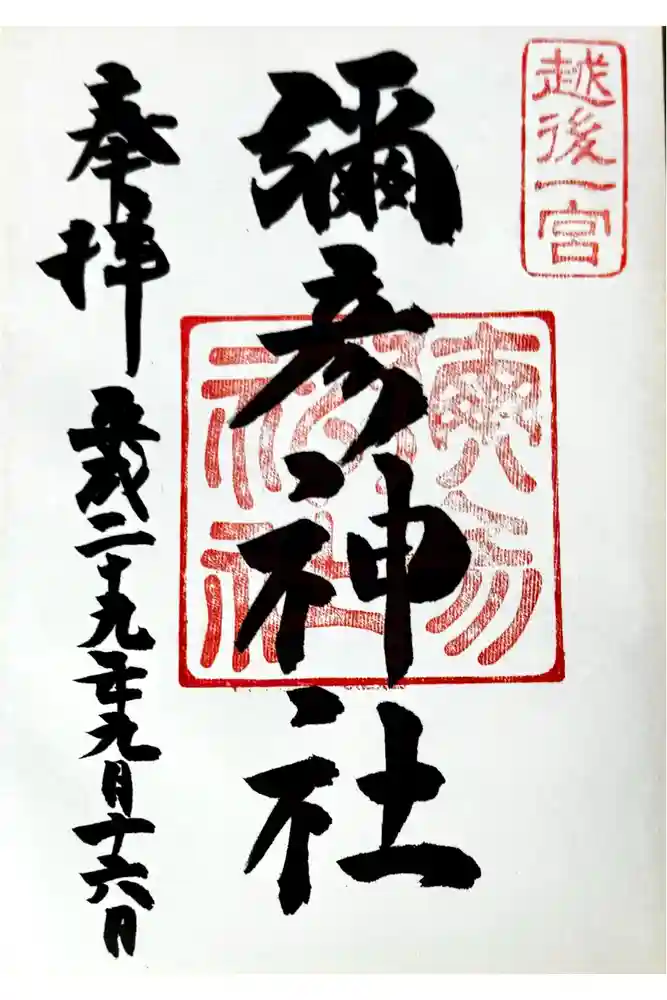 越後一宮
彌彦神社
奉拝 平成二十九年九月十六日